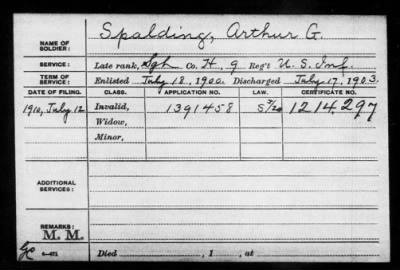 NAME OF SOLDIER: Spalding, Arthur G.
SERVICE: Late rank, Sgt Co. H, 9 Reg't U. S. Inf.
TERM OF SERVICE: Enlisted July 18, 1900. Discharged July 17, 1903.
DATE OF FILING. CLASS. APPLICATION NO. LAW. CERTIFICATE NO.
1910, July 12 Invalid, 1391458 1214.297
Widow,
Minor,
ADDITIONAL SERVICES:
REMARKS:
M. M.
Died , 1 , at